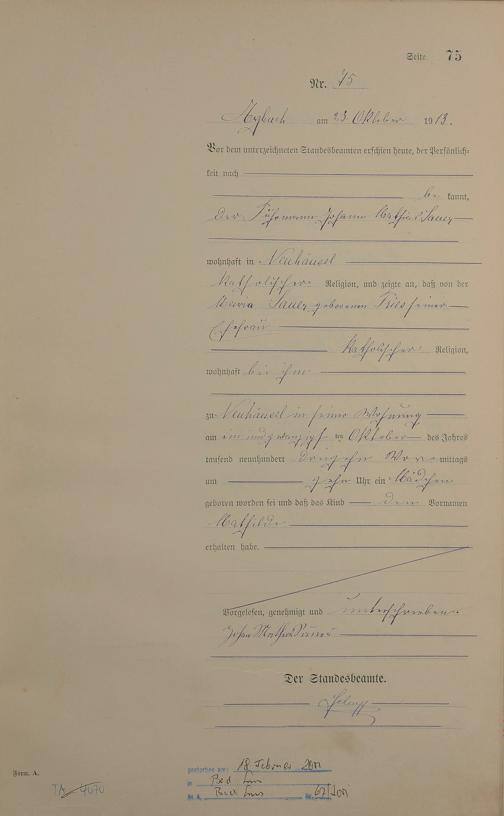 Seite 75
Nr. 75
am 23 Oktober 1913.
Vor dem unterzeichneten Standesbeamten erschien heute, der Persönlich-
keit nach
be kannt,
der Fuhrmann Johann Mathias Sauer
wohnhaft in Neuhäusel
katholischer Religion, und zeigte an, daß von der
Maria Sauer geborenen Ries seiner
Ehefrau
katholischer Religion,
wohnhaft bei ihm
zu Neuhäusel in seiner Wohnung
am ein und zwanzigsten Oktober des Jahres
tausend neunhundert dreizehn Vor mittags
um zehn Uhr ein Mädchen
geboren worden sei und daß das Kind den Vornamen
Mathilde
erhalten habe.
Vorgelesen, genehmigt und unterschrieben.
Johann Mathias Sauer
Der Standesbeamte.
Form. A.
gestorben am: 18. Februar 2001
in Bad Ems
St. A. Bad Ems Nr. 67/2001